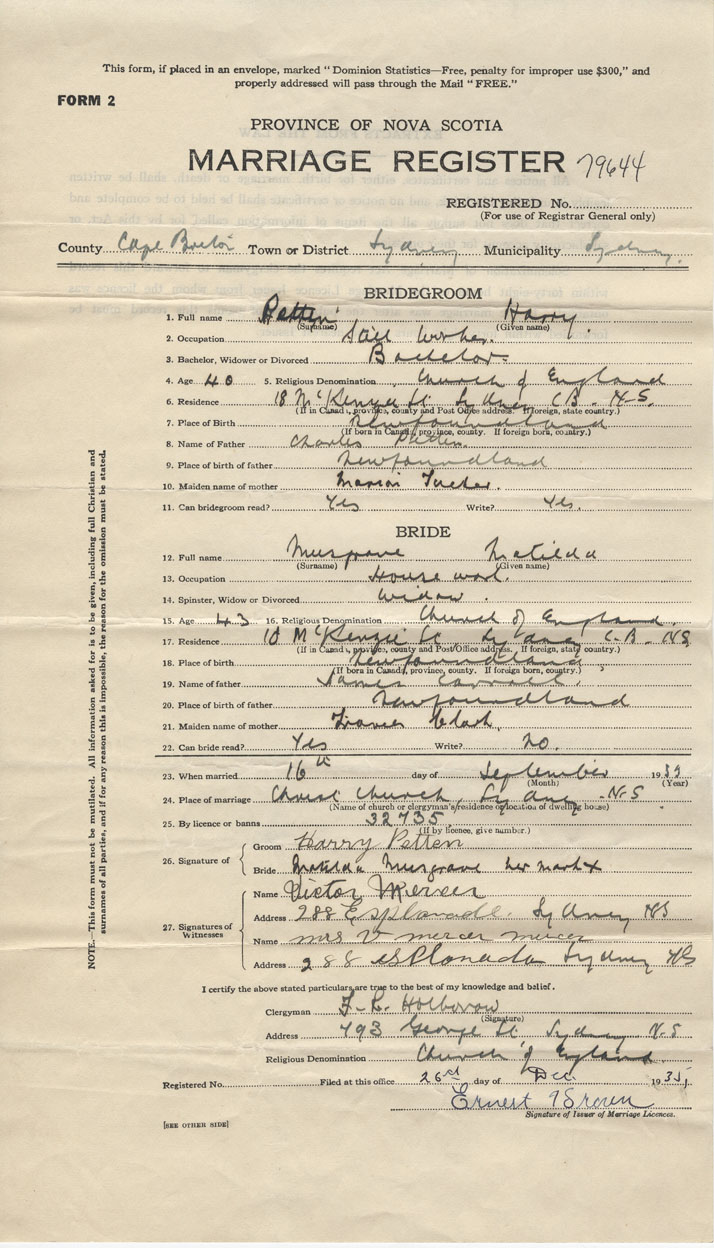 This form, if placed in an envelope, marked "Dominion Statistics—Free, penalty for improper use $300," and
properly addressed will pass through the Mail "FREE."
FORM 2
PROVINCE OF NOVA SCOTIA
MARRIAGE REGISTER 79644
REGISTERED No.
(For use of Registrar General only)
County Cape Breton Town or District Sydney Municipality Sydney
BRIDEGROOM
1. Full name Petten Harry
(Surname) (Given name)
2. Occupation Still Worker
3. Bachelor, Widower or Divorced Bachelor
4. Age 40 5. Religious Denomination Church of England
6. Residence 18 McKenzie St Sydney C.B. N.S.
(If in Canada, province, county and Post Office address. If foreign, state country.)
7. Place of Birth Newfoundland
(If born in Canada, province, county. If foreign born, country.)
8. Name of Father Charles Petten
9. Place of birth of father Newfoundland
10. Maiden name of mother Tucker
11. Can bridegroom read? Yes Write? Yes.
BRIDE
12. Full name Musgrave Matilda
(Surname) (Given name)
13. Occupation House work.
14. Spinster, Widow or Divorced Widow.
15. Age 43 16. Religious Denomination Church of England.
17. Residence 18 McKenzie St Sydney C.B. N.S.
(If in Canada, province, county and Post Office address. If foreign, state country.)
18. Place of birth Newfoundland
(If born in Canada, province, county. If foreign born, country.)
19. Name of father James
20. Place of birth of father Newfoundland
21. Maiden name of mother Frances Clark
22. Can bride read? Yes Write? No.
23. When married 16th day of September 19
(Month) (Year)
24. Place of marriage Christ Church, Sydney N.S
(Name of church or clergyman's residence or location of dwelling house)
25. By licence or banns 32735
(If by licence, give number.)
26. Signature of
Groom Harry Petten
Bride Matilda Musgrave her mark x
27. Signatures of Witnesses
Name Victor Mercer
Address 288 Esplanade. Sydney NS
Name mrs V mercer mercer
Address 288 esplanada Sydney NS
I certify the above stated particulars are true to the best of my knowledge and belief.
Clergyman Holborow
(Signature)
Address 793 George St Sydney N.S
Religious Denomination Church of England.
Registered No. Filed at this office 26 day of Dec 1935
Ernest Brown
Signature of Issuer of Marriage Licences.
[SEE OTHER SIDE]
NOTE.—This form must not be mutilated. All information asked for is to be given, including full Christian and
surnames of all parties, and if for any reason this is impossible, the reason for the omission must be stated.